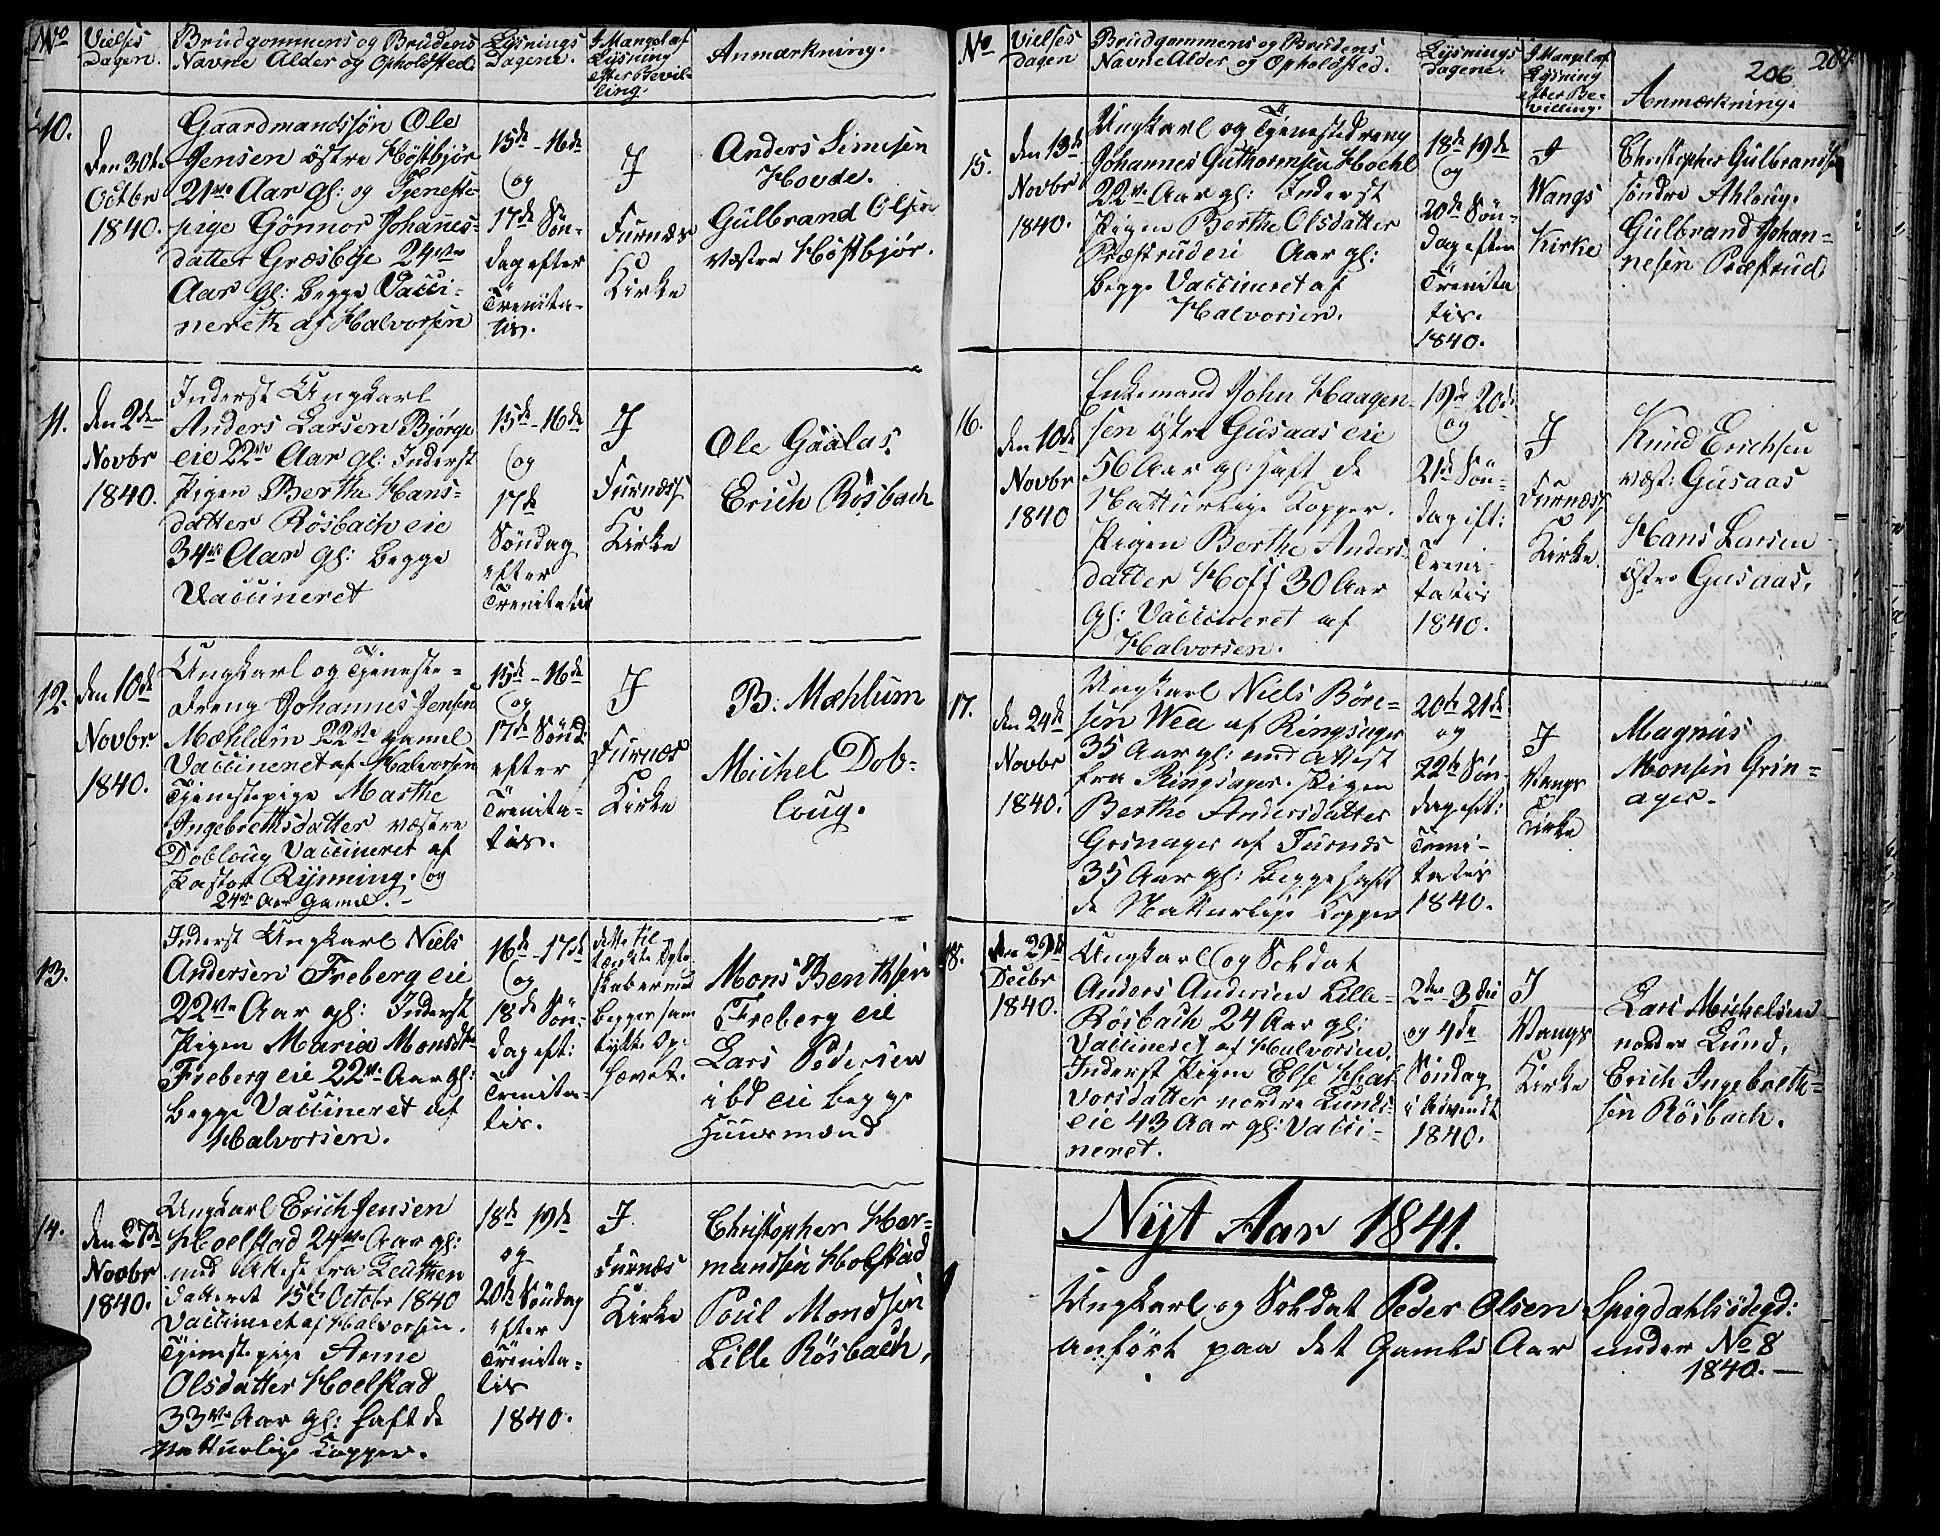 No
Vielses Dagen.
Brudgommens og Brudens
Navne Alder og Opholdsted.
Lysnings
Dagene.
I Mangel af
Lysning
efter Bevil-
ling.
Anmærkning.
10.
den 30te
Octbr
1840.
Gaardmandssøn Ole
Jensen østre Høstbjør
21ve Aar gl: og Tjeneste-
pige Gönnor Johannes-
datter Græsbye 24ve
Aar gl: begge Vacci-
nereth af Halvorsen
15de - 16de
og
17de Søn-
dag efter
Trenita-
tis.
I
Furnæs
Kirke
Anders Simesen
Hovde.
Gulbrand Olsen
vestre Høstbjør.
11.
den 2den
Novbr
1840.
Inderst Ungkarl
Anders Larsen Bjørge
eie 22ve Aar gl: Inderst
Pigen Berthe Hans-
datter Rösbach eie
34ve Aar gl: begge
Vaccineret
15de - 16de
og
17de
Søndag
efter
Trenitatis
I
Furnæss
Kirke
Ole Gaalas.
Erich Rösbach
12.
den 10de
Novbr
1840.
Ungkarl og Tjeneste-
dreng Johannes Jensen
Mæhlum 22ve gamel
Vaccineret af Halvorsen
Tjenestepige Marthe
Ingebrethsdatter vestre
Dobloug Vaccineret af
Pastor Rynning. og
24ve Aar Gamel. -
15de - 16de
og
17de Sønd:
efter
Trenita-
tis.
I
Furnæs
Kirke
B. Mæhlum
Michel Dob-
loug.
13.
Inderst Ungkarl Niels
Andersen Freberg eie
22ve Aar gl: Inderst
Pigen Maria Monsdt
Freberg eie 22ve Aar gl:
begge Vaccineret af
Halvorsen.
16de - 17de
og
18de Søn-
dag eft:
Trenita-
tis.
dette til
tænkte Egte-
skaber med
begges sam
tykke Op-
hævet.
Mons Benthsen
Freberg eie
Lars Pedersen
ibd eie begge
Huusmænd
14.
den 27de
Novbr
1840.
Ungkarl Erich Jensen
Hoelstad 24ve Aar gl:
med Attest fra Leuthen
datteret 15de Octobr 1840
Vaccineret af Halvorsen.
Tjenstepige Anne
Olsdatter Hoelstad
33ve Aar gl: haft de
Natturlige Kopper.
18de 19de
og
20de Søndag
efter
Trinita-
tis
1840.
I.
Furnæs
Kirke
Christopher Her-
mandsen Holstad
Poul Mondsen
Lille Rösbach,
No
Vielses
Dagen
Brudgommens og Brudens
Navne Alder og Opholdsted.
Lysnings
Dagene.
I Mangel af
Lysning
efter Be-
villing.
Anmærkning.
206
207.
15.
den 13de
Novbr
1840.
Ungkarl og Tjenestedreng
Johannes Guthormsen Hoehl
22ve Aar gl: Inderst
Pigen Berthe Olsdatter
Præstruderi Aar gl:
begge Vaccineret af
Halvorsen.
18de 19de
og
20de Søn-
dag efter
Trinita
tis.
1840.
I
Wangs
Kirke
Christopher Gulbrandse
søndre Ahloug.
Gulbrand Johan-
nesen Præstrud.
16.
den 10de
Novbr
1840
Enkemand John Haagen-
sen østre Gusaas eie
56 Aar gl: haft de
Natturlige Kopper.
Pigen Berthe Anders-
datter Hoff 30 Aar
gl: Vaccineret af
Halvorsen.
19de 20de
og
21de Søn-
dag eft:
Treni-
tatis
1840.
I
Furnæss
Kirke.
Knud Erichsen
vest: Gusaas
Hans Larsen
østre Gusaas.
17.
den 24de
Novbr
1840.
Ungkarl Niels Böre-
sen Wea af Ringsager
35 Aar gl: med Attest
fra Ringsager. Pigen
Berthe Andersdatter
Grinager af Furnæs
35 Aar gl: begge haft
de Natturlige Kopper
20de 21de
og
22de Søn-
dag eft:
Treni-
tatis
1840.
I
Wangs
Kirke
Magnus
Monsen Grin-
ager.
18.
den 29de
Decbr
1840.
Ungkarl og Soldat
Anders Andersen Lille-
Rösbach 24 Aar gl:
Vaccineret af Halvorsen.
Inderst Pigen Else Hal-
vorsdatter nordre Lunds-
eie 43 Aar gl: Vacci-
neret.
2den 3die
og 4de
Søndag
i Advendt
1840.
I
Wangs
Kirke
Lars Michelsen
nordre Lund,
Erich Ingebreth-
sen Rösbach.
Nyt Aar 1841.
Ungkarl og Soldat Peder Olsen Spigdahlsödegd:
anført paa det Gamle Aar under No 8
1840. —